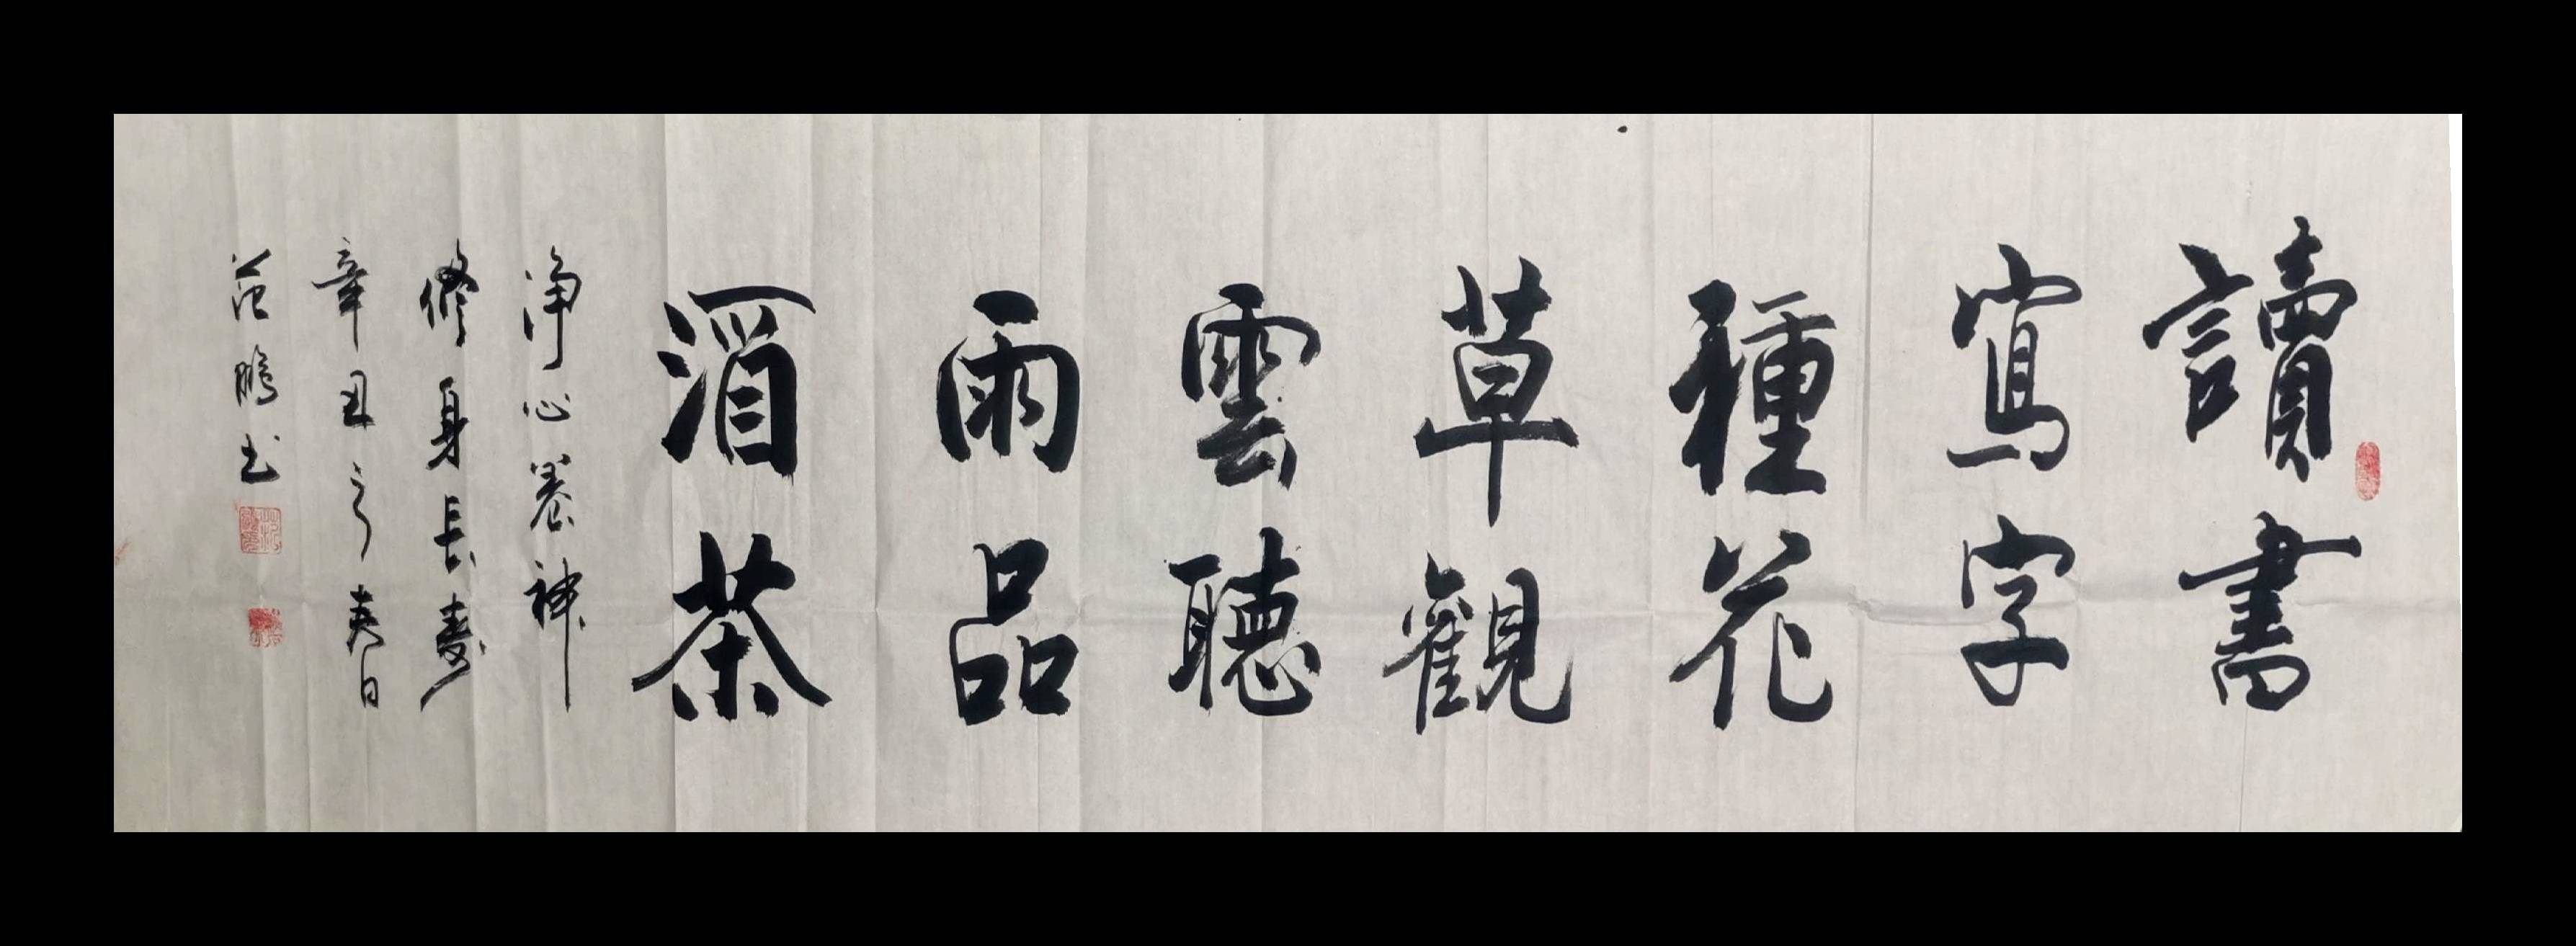 讀書
寫字
種花
草觀
雲聽
雨品
酒茶
淨心養神
修身長壽
辛丑之春日
范鵬书